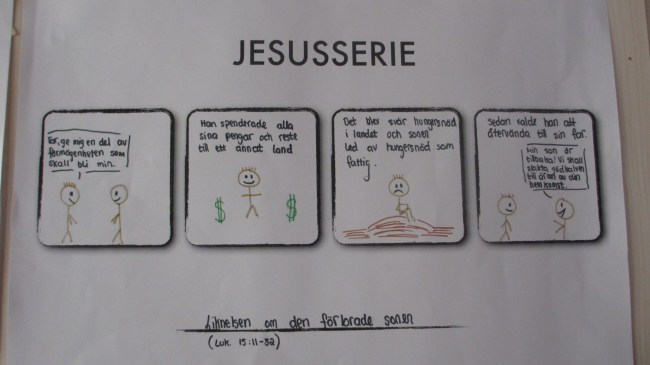 JESUSSERIE
Far, ge mig en del av
förmögenheten som
skall bli min.
Han spenderade alla
sina pengar och reste
till ett annat land
$ $
Det blev svår hungersnöd
i landet och sonen
led av hungersnöd som
fattig.
Sedan valde han att
återvända till sin far.
Min son är
tillbaka! Vi skall
slakta gödkalven
till ära av din
hemkomst.
Liknelsen om den förlorade sonen
(Luk. 15:11-32)